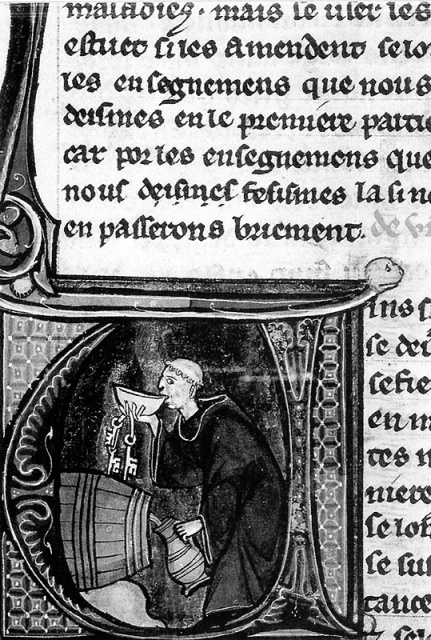 maladies . mais se user les
estuet si les amendent selo
les ensegnemens que nous
deismes en le premiere partie
car por les ensegnemens que
nous deismes
en passerons briement. de vi
ins s
se dei
se fie
en m
tes n
niere
se lob
se sus
tance